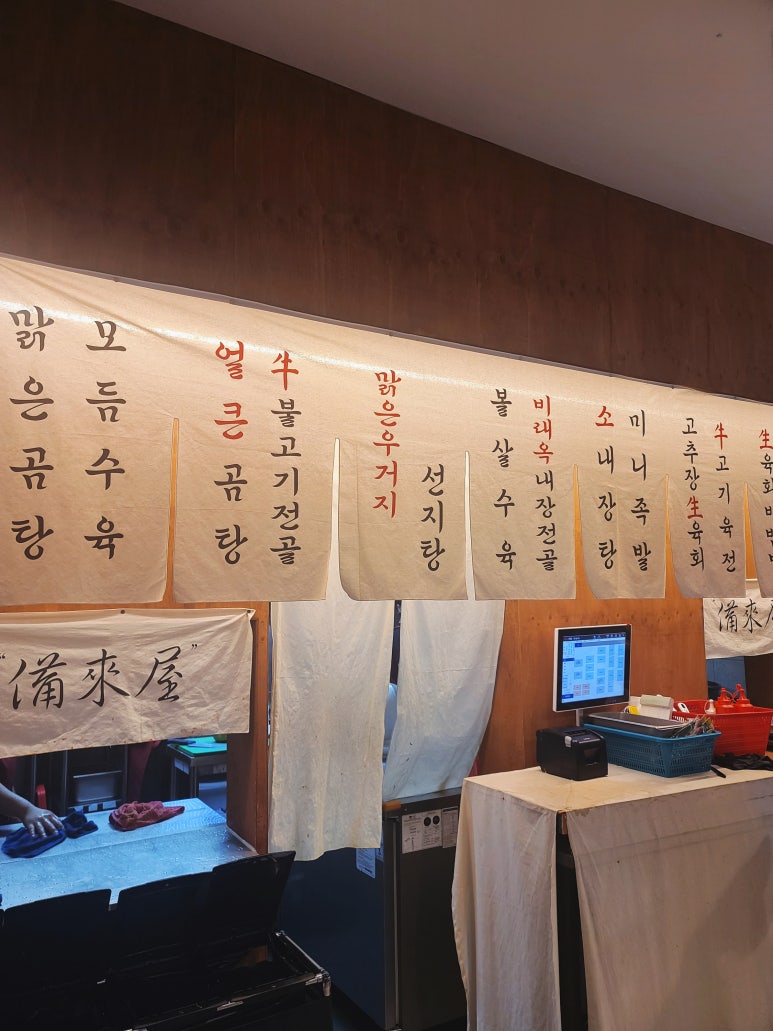 맑은곰탕
모듬수육
얼큰곰탕
牛불고기전골
맑은우거지
선지탕
볼살수육
비래옥내장전골
소내장탕
미니족발
고추장生육회
牛고기육전
生육회비빔
"備來屋"
備來